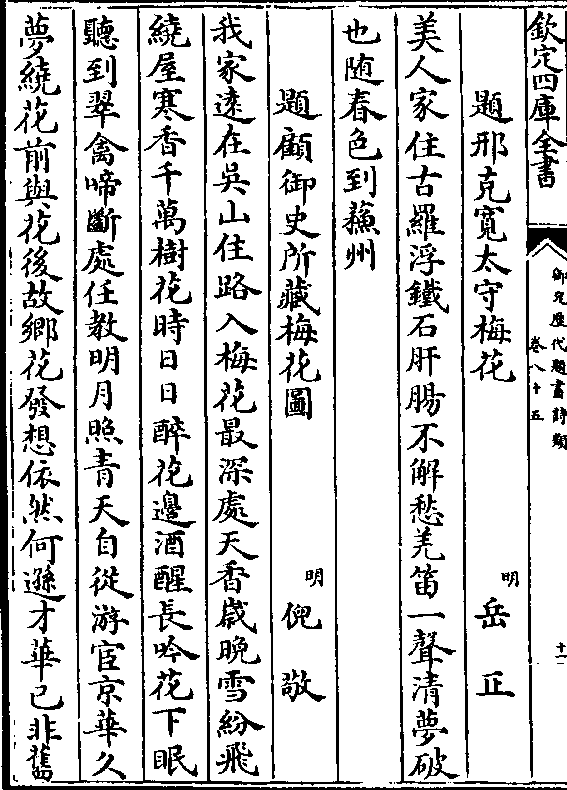 欽定四庫全書
御定歷代題畫詩類
卷八十五
十二
題邢克寬太守梅花
明
岳正
美人家住古羅浮鐵石肝腸不解愁羌笛一聲清夢破
也随春色到蘓州
題顧御史所藏梅花圖
明
倪敬
我家遠在吳山住路入梅花最深處天香歲晚雪紛飛
繞屋寒香千萬樹花時日日醉花邊酒醒長吟花下眠
聽到翠禽啼斷處任教明月照青天自從游宦京華久
夢繞花前與花後故鄉花發想依然何遜才華已非舊